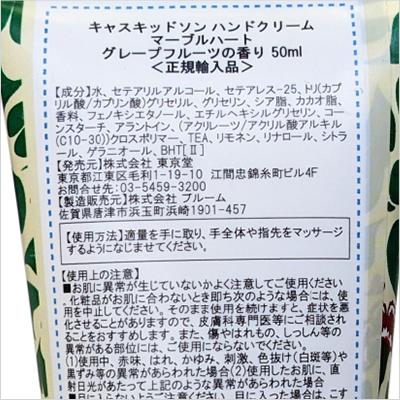 キャスキッドソン ハンドクリーム
マーブルハート
グレープフルーツの香り 50ml
＜正規輸入品＞
【成分】水、セテアリルアルコール、セテアレス-25、トリ(カプ
リル酸/カプリン酸)グリセリル、グリセリン、シア脂、カカオ脂、
香料、フェノキシエタノール、エチルヘキシルグリセリン、コー
ンスターチ、アラントイン、(アクリレーツ/アクリル酸アルキル
(C10-30))クロスポリマー、TEA、リモネン、リナロール、シトラ
ール、ゲラニオール、BHT[Ⅱ]
【発売元】株式会社 東京堂
東京都江東区毛利1-19-10 江間忠錦糸町ビル4F
お問合せ先：03-5459-3200
【製造販売元】株式会社 ブルーム
佐賀県唐津市浜玉町浜崎1901-457
【使用方法】適量を手に取り、手全体や指先をマッサージ
するようになじませてください。
【使用上の注意】
■お肌に異常が生じていないかよく注意してご使用ください。
化粧品がお肌に合わないとき即ち次のような場合には、使
用を中止してください。そのまま使用を続けますと、症状を悪
化させることがありますので、皮膚科専門医等にご相談され
ることをおすすめします。また、傷やはれもの、しっしん等の
異常がある部位には、ご使用にならないでください。
(1)使用中、赤味、はれ、かゆみ、刺激、色抜け(白斑等)や
黒ずみ等の異常があらわれた場合(2)使用したお肌に、直
射日光があたって上記のような異常があらわれた場合